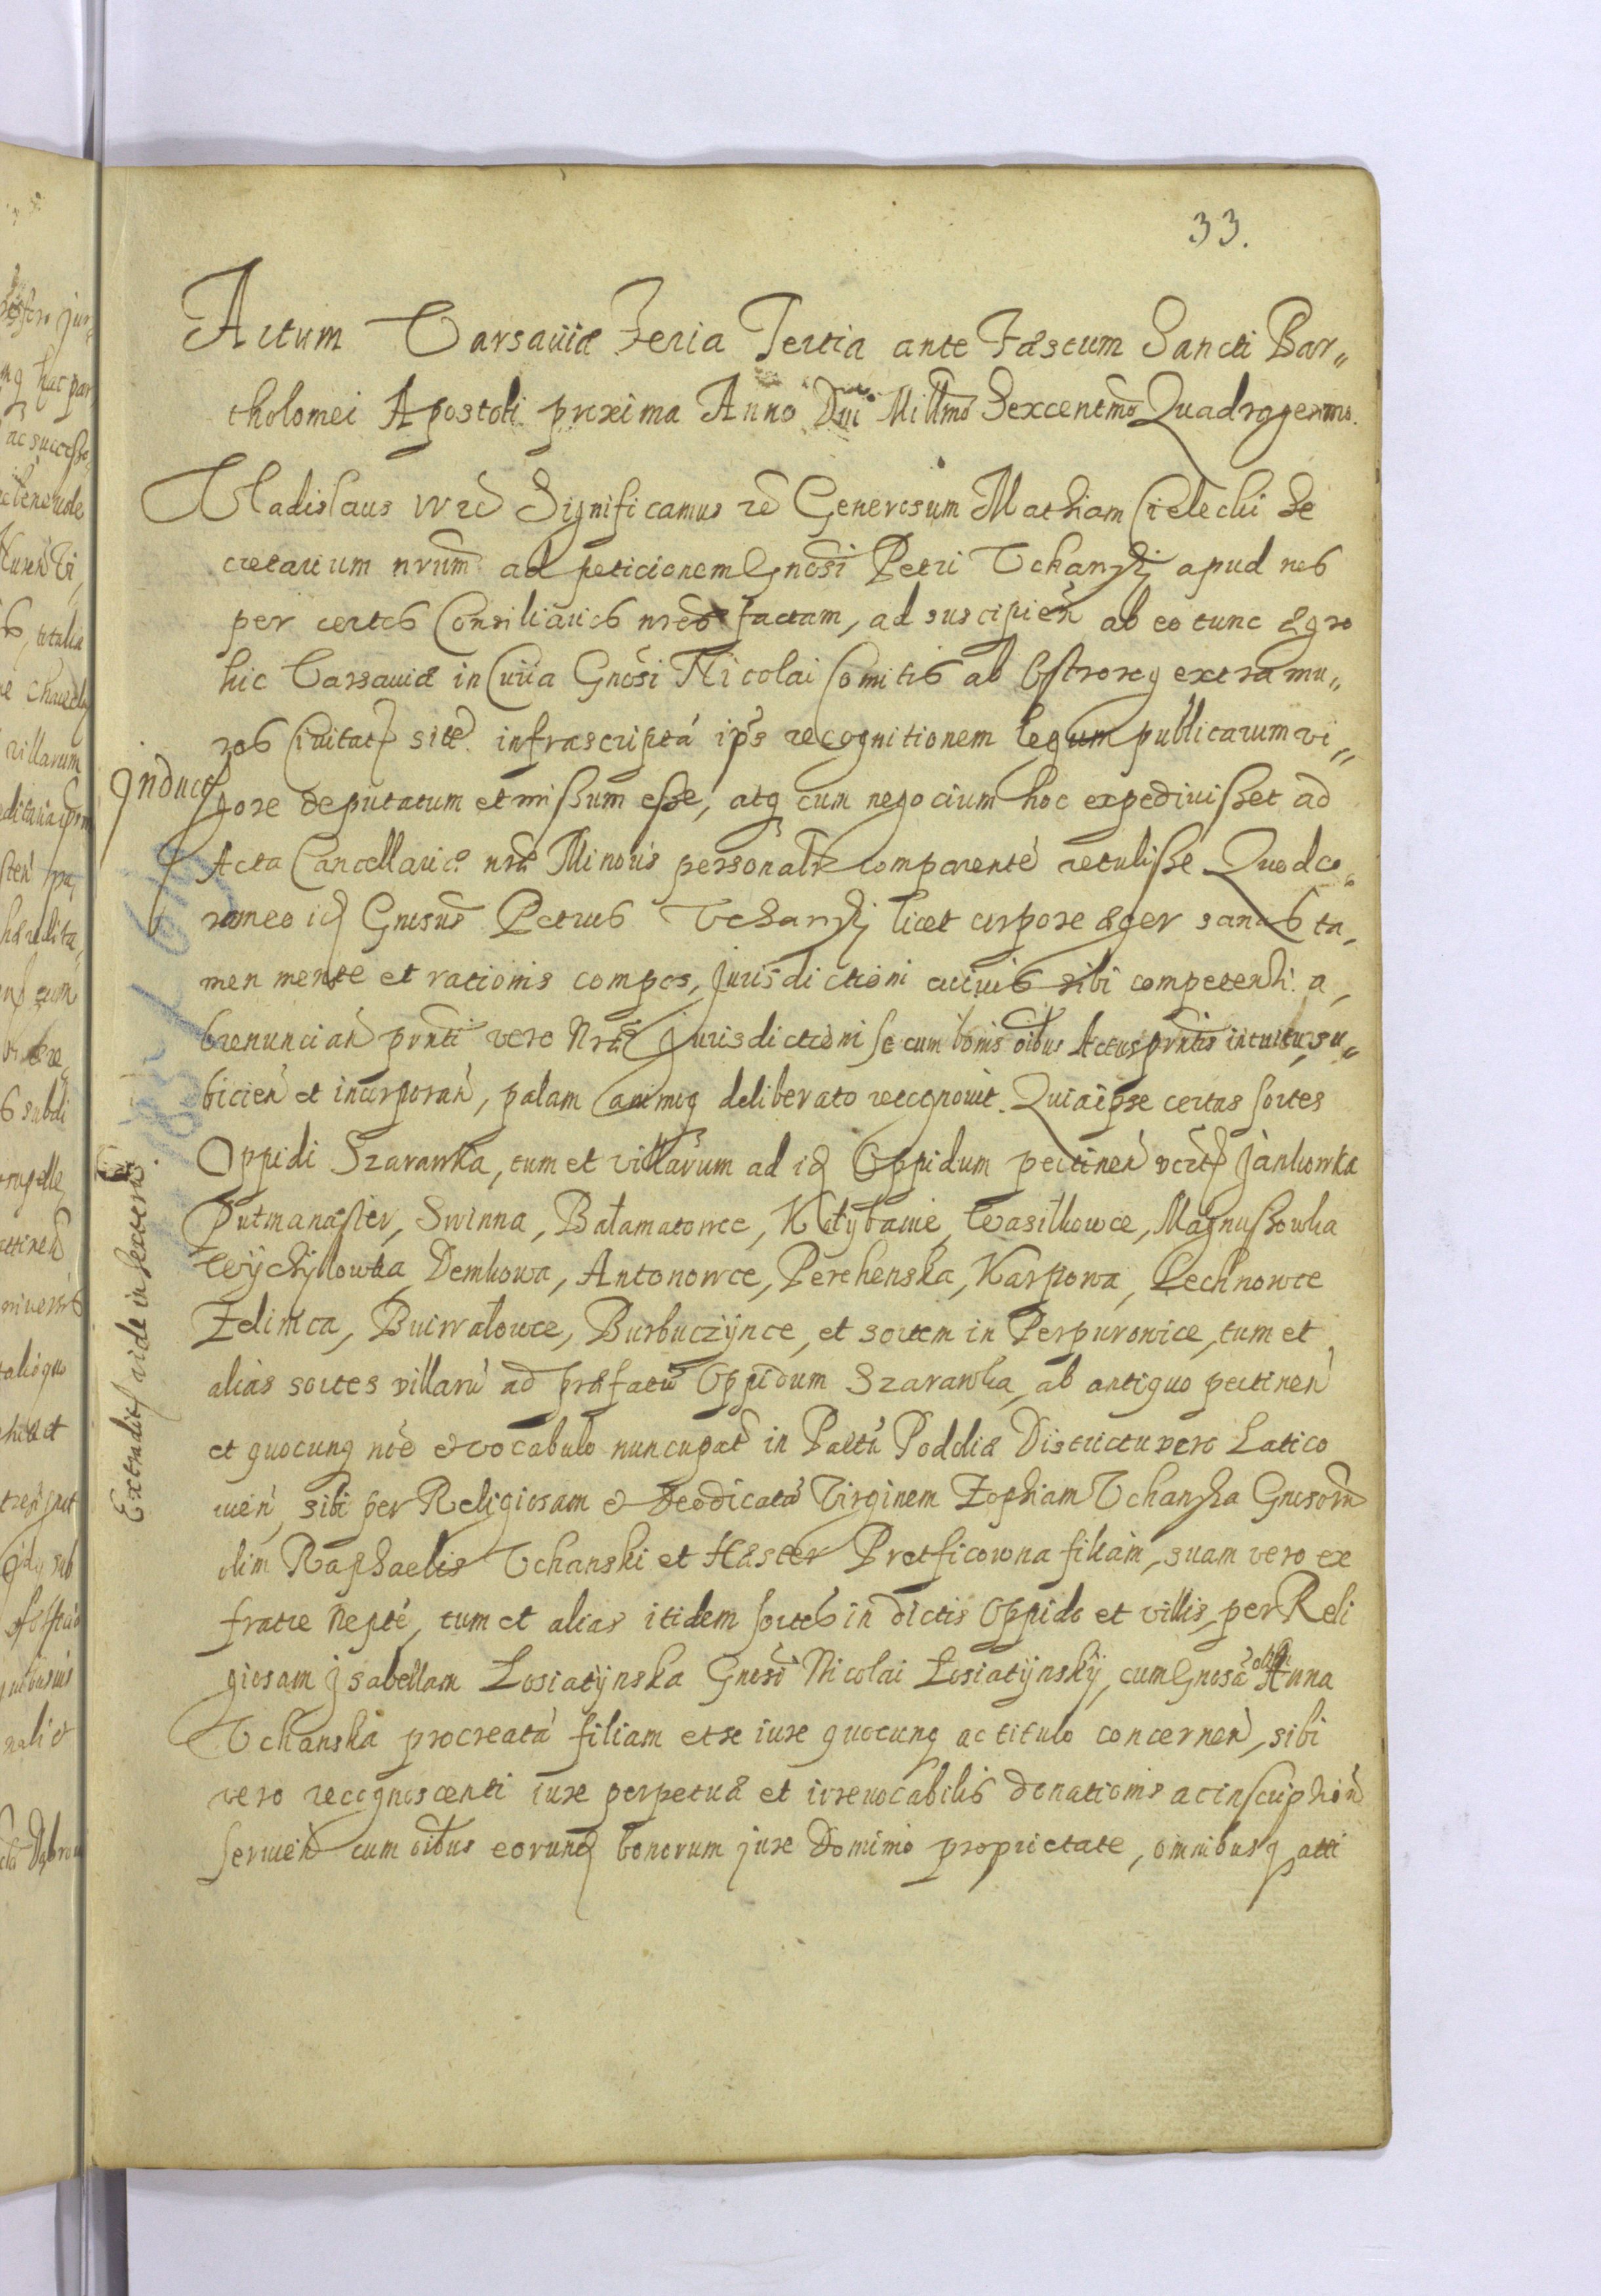 33.
Actum Varsaviæ Feria Tertia ante Fæstum Sancti Bar„
tholomei Apostoli proxima Anno Dni Millmo Sexcentmo Quadragesimo.
Vladislaus IV rc Significamus rc Generosum Mathiam Cielecki Se
cretarium nrum ad peticionem Gnosi Petri Uchanskj apud nos
per certos Consiliarios nros factam, ad suscipień ab eo tunc ægro
hic Varsaviæ in Curia Gnosi Nicolai Comitis ab Ostrorog extra mu„
ros Civitatis sitæ infrascriptá ips recognitionem legum publicarum vi„
gore deputatum et missum esse, atq cum negocium hoc expedivisset ad
Acta Cancellariæ nræ Minoris personalr comparenté retulisse Quod co„
ram eo id Gnosus Petrus Uchanskj licet corpore æger sanus ta„
men mente et rationis compos, Jurisdictioni cuivis sibi competenti a„
brenuncian prnti vero Nræ Jurisdictioni se cum bonis oibus Actus prntis intuitu su„
bicień et incorporań, palam animoq deliberato recognovit. Quia ipse certas sortes
Oppidi Szarawka, tum et villarum ad id Oppidum pertineń vczt Jankowka
Putmanaster, Swinna, Bałamatowce, Kołybanie, Wasilkowce, Magnuszowka
Wychylowka Demkowa, Antonowce, Perehenska, Karpowa, Lechnowce
Zelinica, Buiwałowce, Burbuczÿnce, et sortem in Perpurowice, tum et
alias sortes villarú ad præfatú Oppidum Szarawka, ab antiquo pertineń
et quocunq noe et vocabulo nuncupat in Paltú Podoliæ Districtu vero Latico
vień, sibi per Religiosam et Deodicatá Virginem Zophiam Uchanska Gnosorm
olim Raphaelis Uchanski et Hæster Protficowna filiam, suam vero ex
fratre Nepté, tum et alias itidem sortes in dictis Oppido et villis, per Reli
giosam Jsabellam Łosiatÿnska Gnosi Nicolai Łosiatÿnskÿ, cum Gnosa olim Anna
Uchanska procreatá filiam et se iure quocunq ac titulo concerneń, sibi
vero recognoscenti iure perpetuæ et irrevocabilis donationis ac inscription
servień cum oibus eorund bonorum jure Dominio proprietate, omnibusq atti
Induct
Extradit aide in Sexterno.